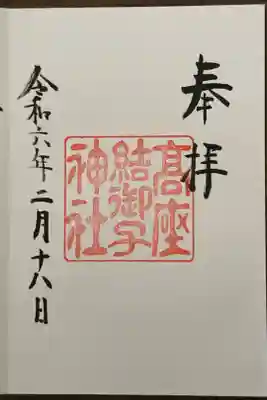 奉拝
高座
結御子
神社
令和六年二月十八日